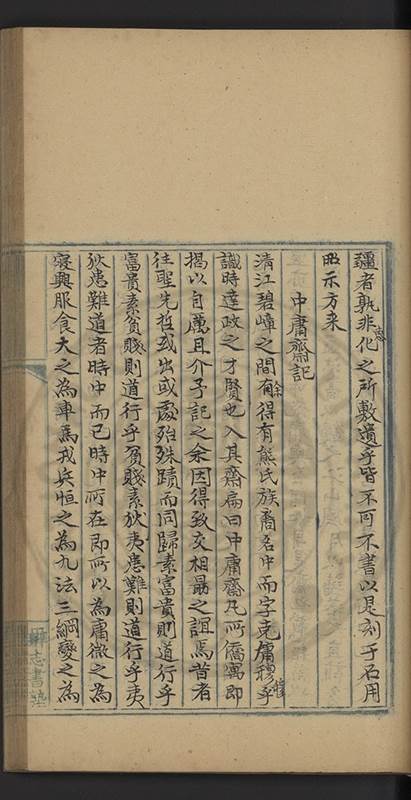 疆者孰非德化之所敷遺乎皆不可不書以是刻于石用
昭示方来
中庸齋記
清江碧嶂之間余得有熊氏族裔名中而字克庸穆乎
識時達政之才賢也入其齋扁曰中庸齋凡所僑寓即
揭以自厲且介予記之余因得致交相勗之誼焉昔者
往聖先哲或出或處殆殊蹟而同歸素富貴則道行乎
富貴素貧賤則道行乎貧賤素狄夷患難則道行乎夷
狄患難道者時中而已時中所在即所以為庸微之為
寝興服食大之為車馬戎兵恒之為九法三綱變之為
志書塾